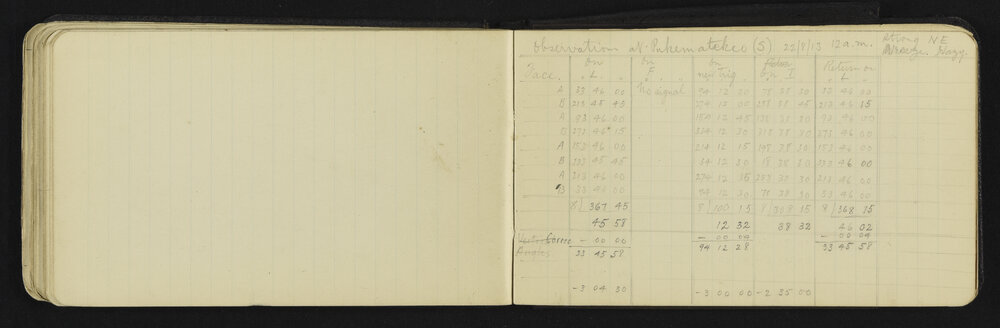 Observation at Pukematekeo (S) 22/8/13 12 a.m. strong NE
Breeze. Hazy.
Face. on L. on F on new trig on I Return on L
A 33 46 00 No signal 94 12 30 78 38 30 33 46 00
B 213 45 45 274 12 00 258 38 45 213 46 15
A 93 46 00 154 12 45 138 38 30 93 46 00
B 273 46 15 334 12 30 318 38 30 273 46 00
A 153 46 00 214 12 15 198 38 30 153 46 00
B 333 45 45 34 12 30 18 38 30 333 46 00
A 213 46 00 274 12 35 258 38 30 213 46 00
B 33 46 00 94 12 30 78 38 30 33 46 00
8/ 367 45 8/ 100 15 8/ 308 15 8/ 368 15
45 58 12 32 38 32 46 02
Corrn - 00 00 - 00 04 - 00 04
Angles 33 45 58 94 12 28 33 45 58
-3 04 30 -3 00 00 -2 35 00